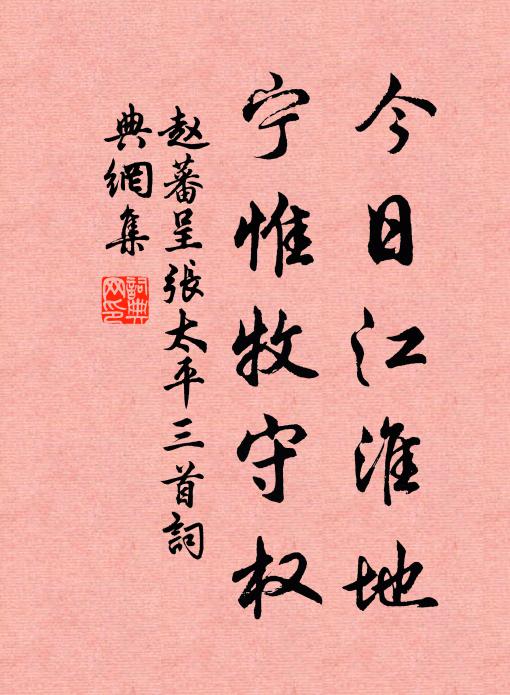 今日江淮地
宁惟牧守权
赵蕃呈張太平三首詞
典網集
詞典
网印